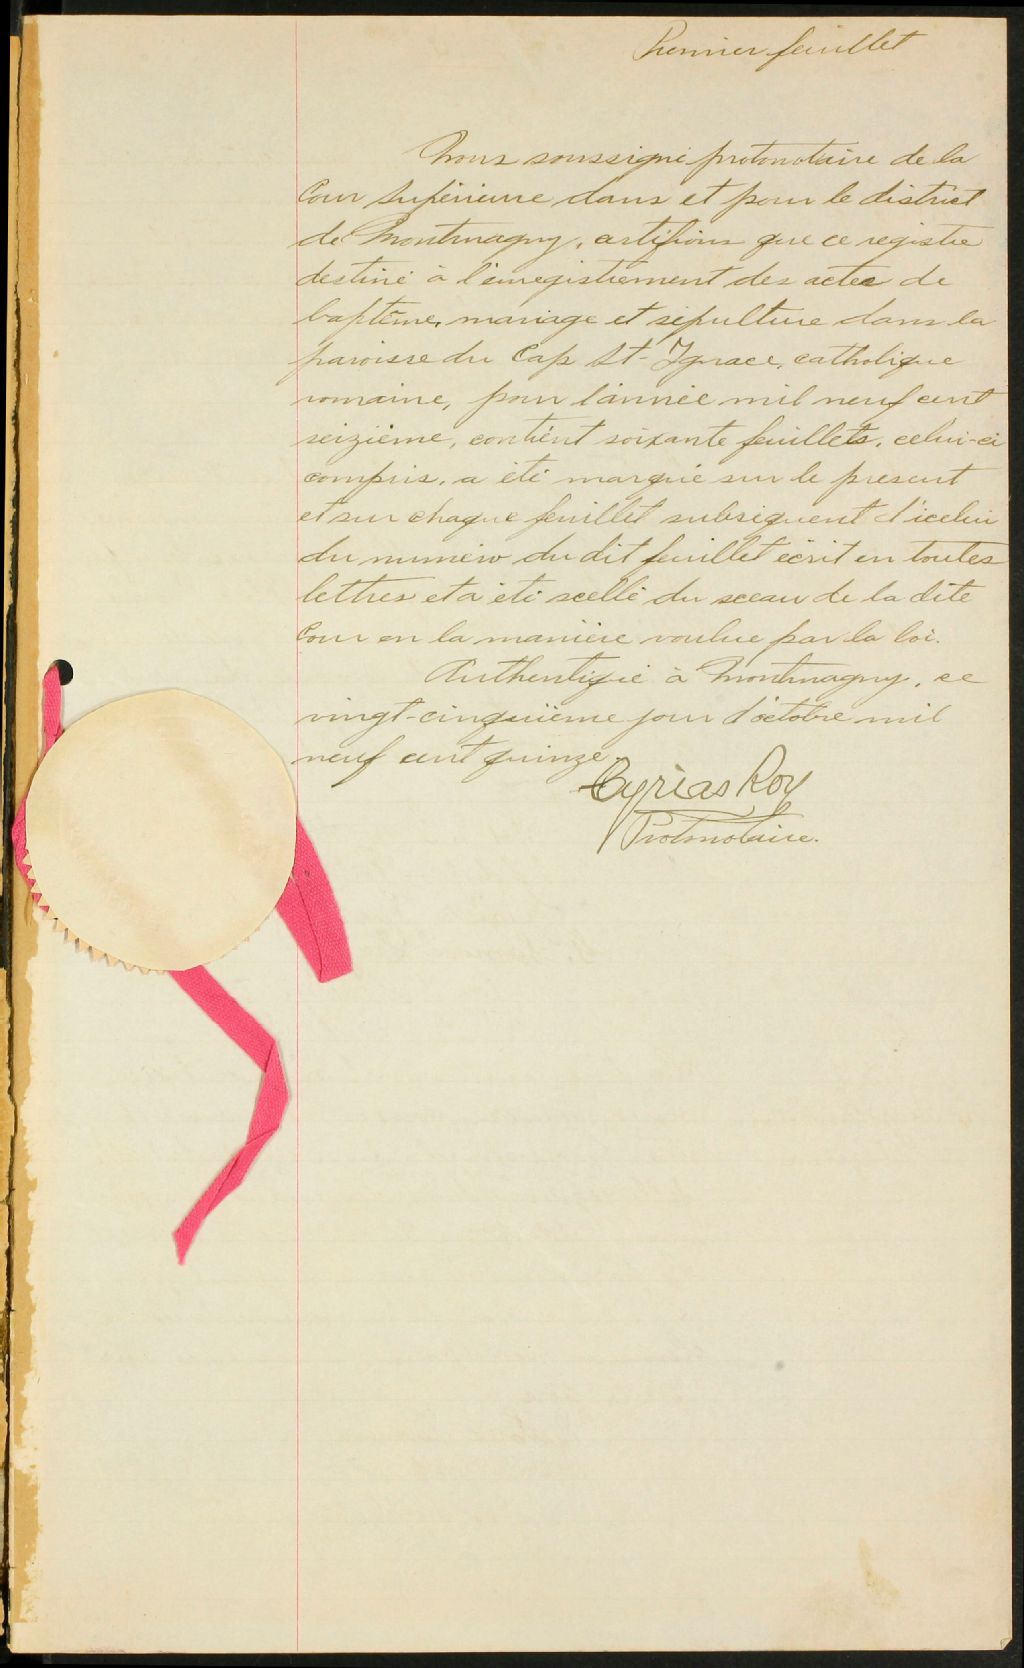 Premier feuillet
Nous soussigné protonotaire de la
Cour Supérieure dans et pour le district
de Montmagny, certifions que ce registre
destiné à l'enregistrement des actes de
baptême, mariage et sépulture dans la
paroisse du Cap St-Ignace, catholique
romaine, pour l'année mil neuf cent
seizième, contient soixante feuillets, celui-ci
compris, a été marqué sur le présent
et sur chaque feuillet subséquent d'icelui
du numéro du dit feuillet écrit en toutes
lettres et a été scellé du sceau de la dite
Cour en la manière voulue par la loi.
Authentiqué à Montmagny, ce
vingt-cinquième jour d'octobre mil
neuf cent quinze.
Cyrias Roy
Protonotaire.